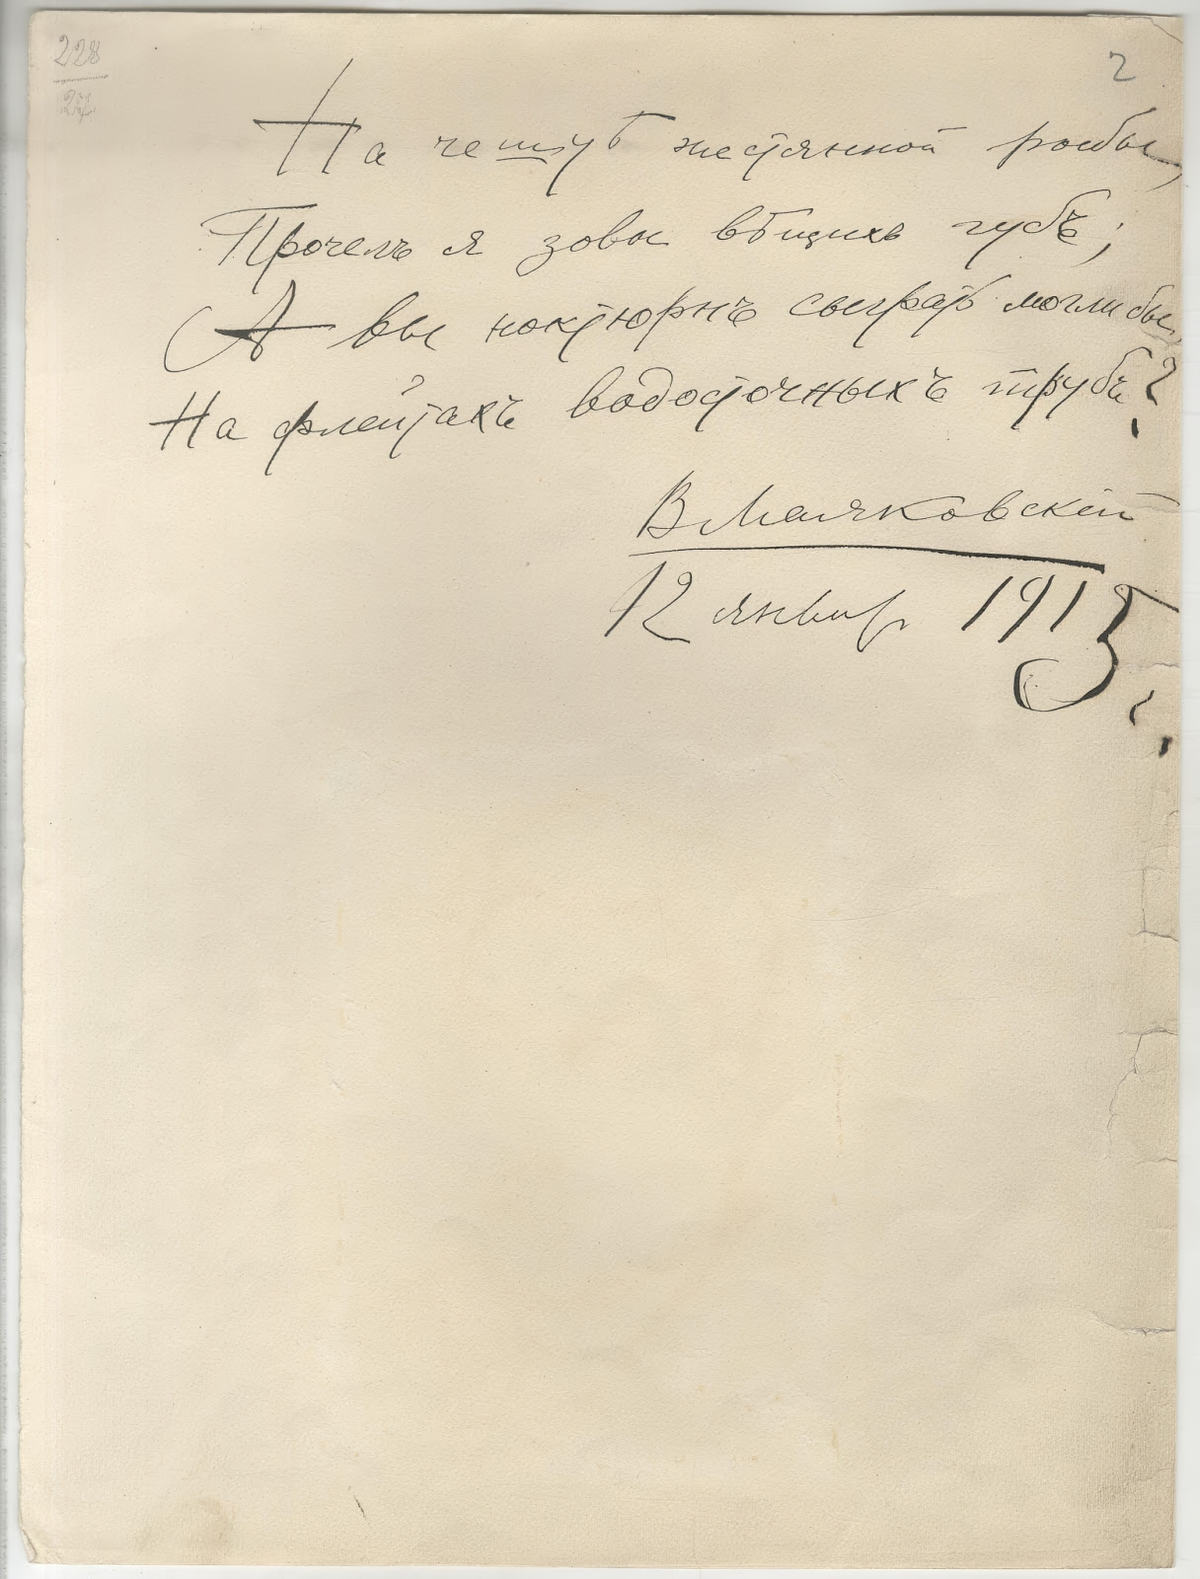 228
27
2
На чешуѣ жестянной рыбы,
Прочелъ я зовы вѣщихъ губъ;
А вы ноктюрнъ сыграть моглибы,
На флейтахъ водосточныхъ трубъ?
В Маяковскій
12 январ 1915